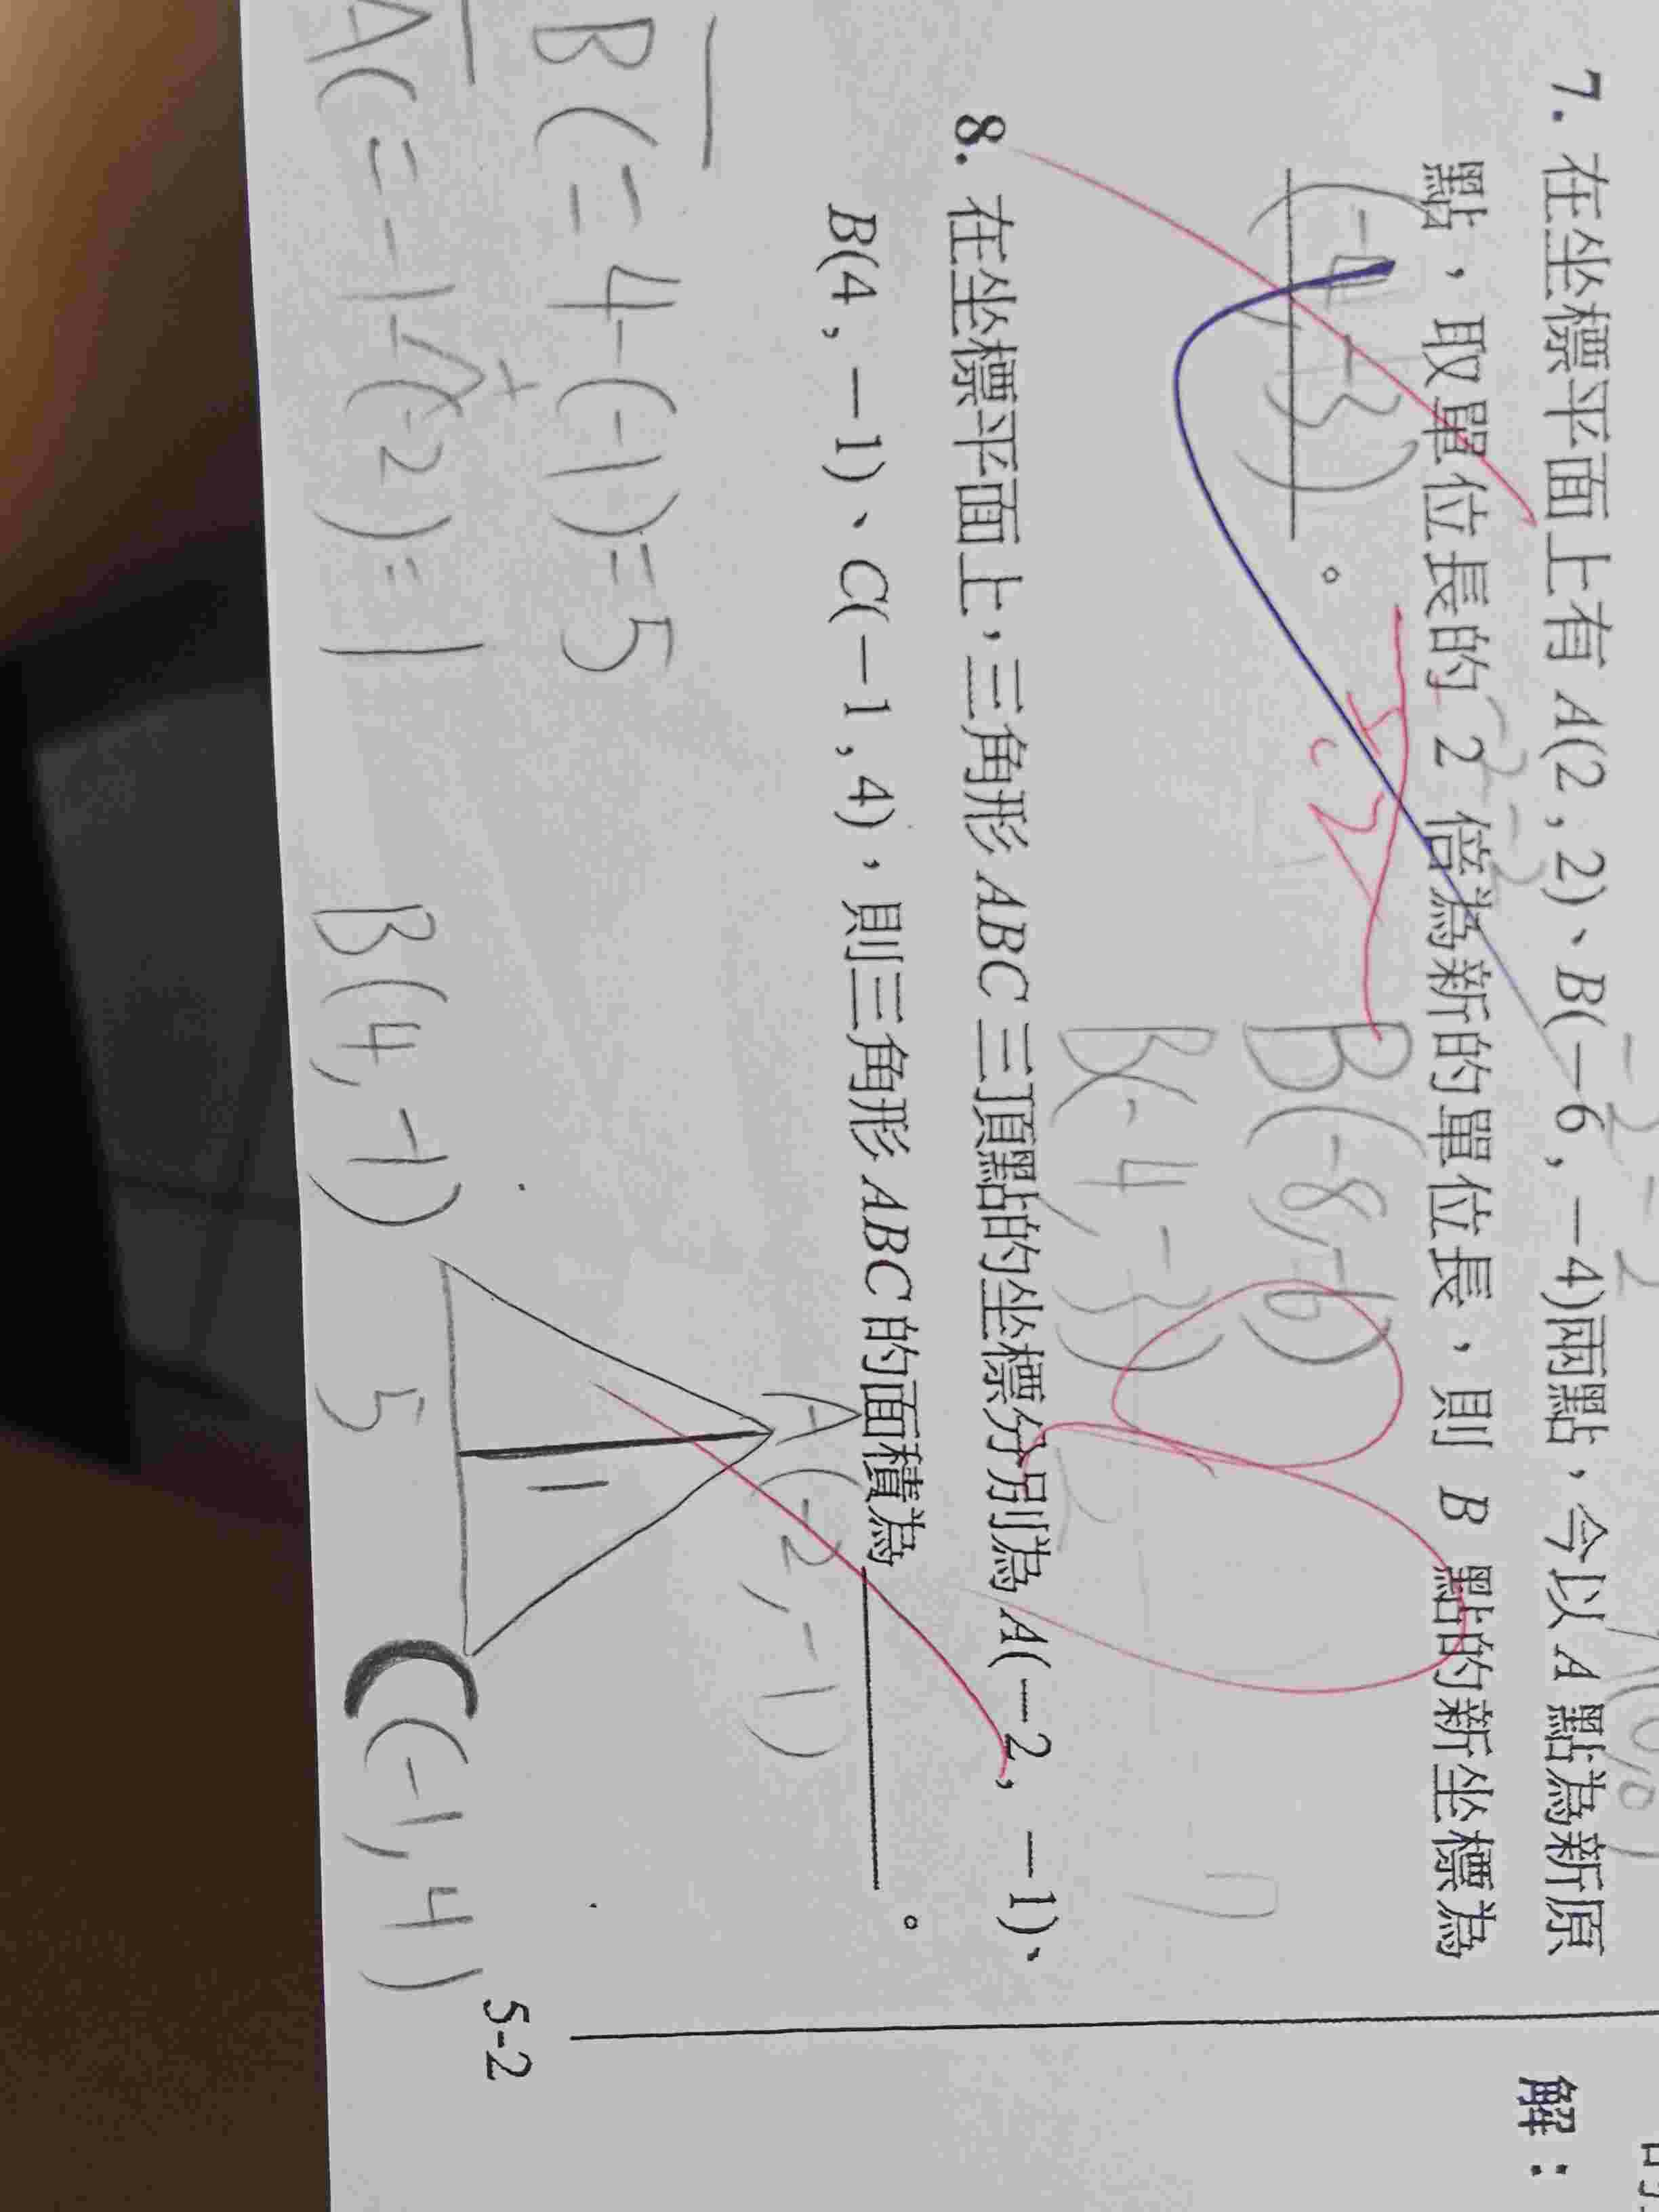 7. 在坐標平面上有 A(2 , 2)、B(−6 , −4)兩點，今以 A 點為新原
點，取單位長的 2 倍為新的單位長，則 B 點的新坐標為
(-4,-3)。
B(-8,-6)
B(-4,-3)
8. 在坐標平面上，三角形 ABC 三頂點的坐標分別為 A(−2，−1)、
B(4 , −1)、C(−1 , 4)，則三角形 ABC 的面積為______。
A(-2,-1)
BC=4-(-1)=5
AC=-1-(-2)=1
B(4,-1)
5
C(-1,4)
5-2
解：